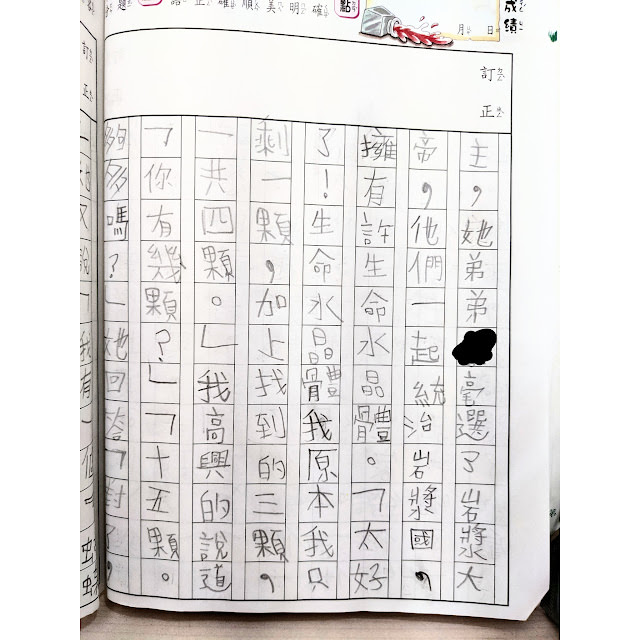 成績
月 日
訂正
主，她弟弟毫選了岩漿大
帝，他們一起統治岩漿國，
擁有許生命水晶體。「太好
了！生命水晶體我原本我只
剩一顆，加上找到的三顆，
一共四顆。」我高興的說道
「你有幾顆？」「十五顆。
夠多嗎？」她回答「對了，